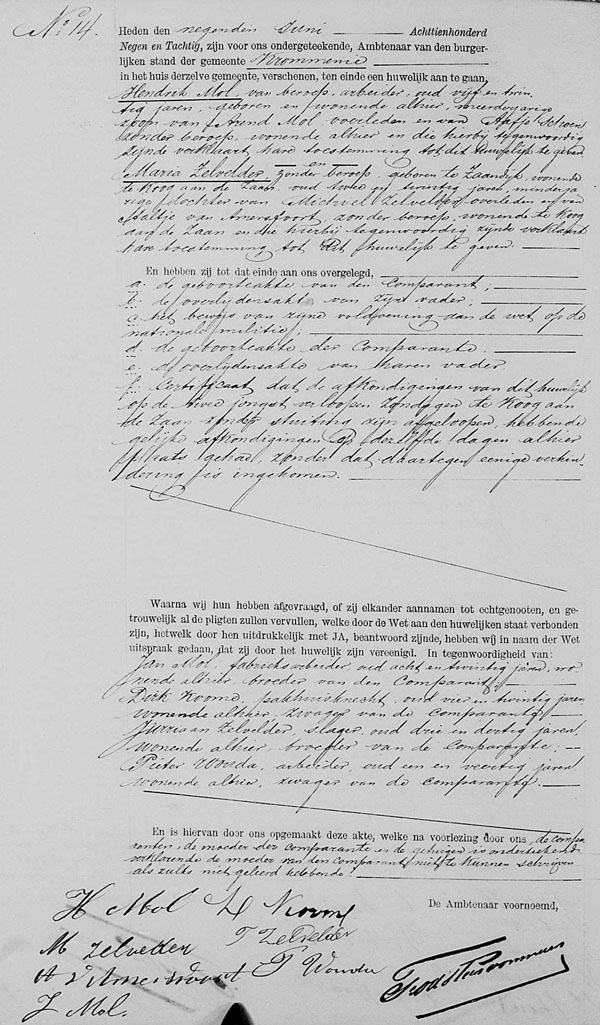 No 14.
Heden den negenden Juni Achttienhonderd
Negen en Tachtig, zijn voor ons ondergeteekende, Ambtenaar van den burger-
lijken stand der gemeente Krommenie
in het huis derzelve gemeente, verschenen, ten einde een huwelijk aan te gaan,
Hendrik Mol, van beroep, arbeider, oud vijf en twin-
tig jaren, geboren en wonende alhier, meerderjarige
zoon van Arend Mol overleden en van Aafje Schoen
zonder beroep, wonende alhier en die hierbij tegenwoordig
zijnde verklaart hare toestemming tot dit huwelijk te geven
en
Maria Zelvelder, zonder beroep, geboren te Zaandijk, wonende
te Koog aan de Zaan, oud twee en twintig jaren, minderja
rige dochter van Michiel Zelvelder overleden en van
Aaltje van Amersfoort, zonder beroep, wonende te Koog
aan de Zaan en die hierbij tegenwoordig zijnde verklaart
hare toestemming tot dit huwelijk te geven.
En hebben zij tot dat einde aan ons overgelegd,
a. de geboorteakte van den Comparant;
b. de overlijdensakt van zijn vader;
c. het bewijs van zijne voldoening aan de wet op de
nationale militie;
d. de geboorteakte der Comparante.
e. de overlijdensakte van haren vader
f. Certificaat dat de afkondigingen van dit huwelijk
op de twee jongst verloopen zondagen te Koog aan
de Zaan zonder stuiting zijn afgeloopen, hebbende
gelijke afkondigingen op dezelfde dagen alhier
plaats gehad, zonder dat daartegen eenige verhin
dering is ingekomen.
Waarna wij hun hebben afgevraagd, of zij elkander aannamen tot echtgenooten, en ge-
trouwelijk al de pligten zullen vervullen, welke door de Wet aan den huwelijken staat verbonden
zijn, hetwelk door hen uitdrukkelijk met JA, beantwoord zijnde, hebben wij in naam der Wet
uitspraak gedaan, dat zij door het huwelijk zijn vereenigd. In tegenwoordigheid van:
Jan Mol, fabrieksarbeider, oud acht en twintig jaren, wo
nende alhier, broeder van den Comparant;
Dirk Koome, pakhuisknecht, oud vier en twintig jaren
wonende alhier, zwager van de Comparante;
Jurriaan Zelvelder, slager, oud drie en dertig jaren
wonende alhier, broeder van de Comparante;
Pieter Wouda, arbeider, oud een en veertig jaren
wonende alhier, zwager van de Comparante.
En is hiervan door ons opgemaakt deze akte, welke na voorlezing door ons, de compa
ranten, de moeder der comparante en de getuigen is onderteekend
verklarende de moeder van den comparant niet te kunnen schrijven
als zulks niet geleerd hebbende.
De Ambtenaar voornoemd,
H Mol D Koome
M Zelvelder J Zelvelder
A v Amersvoort P Wouda
J Mol.